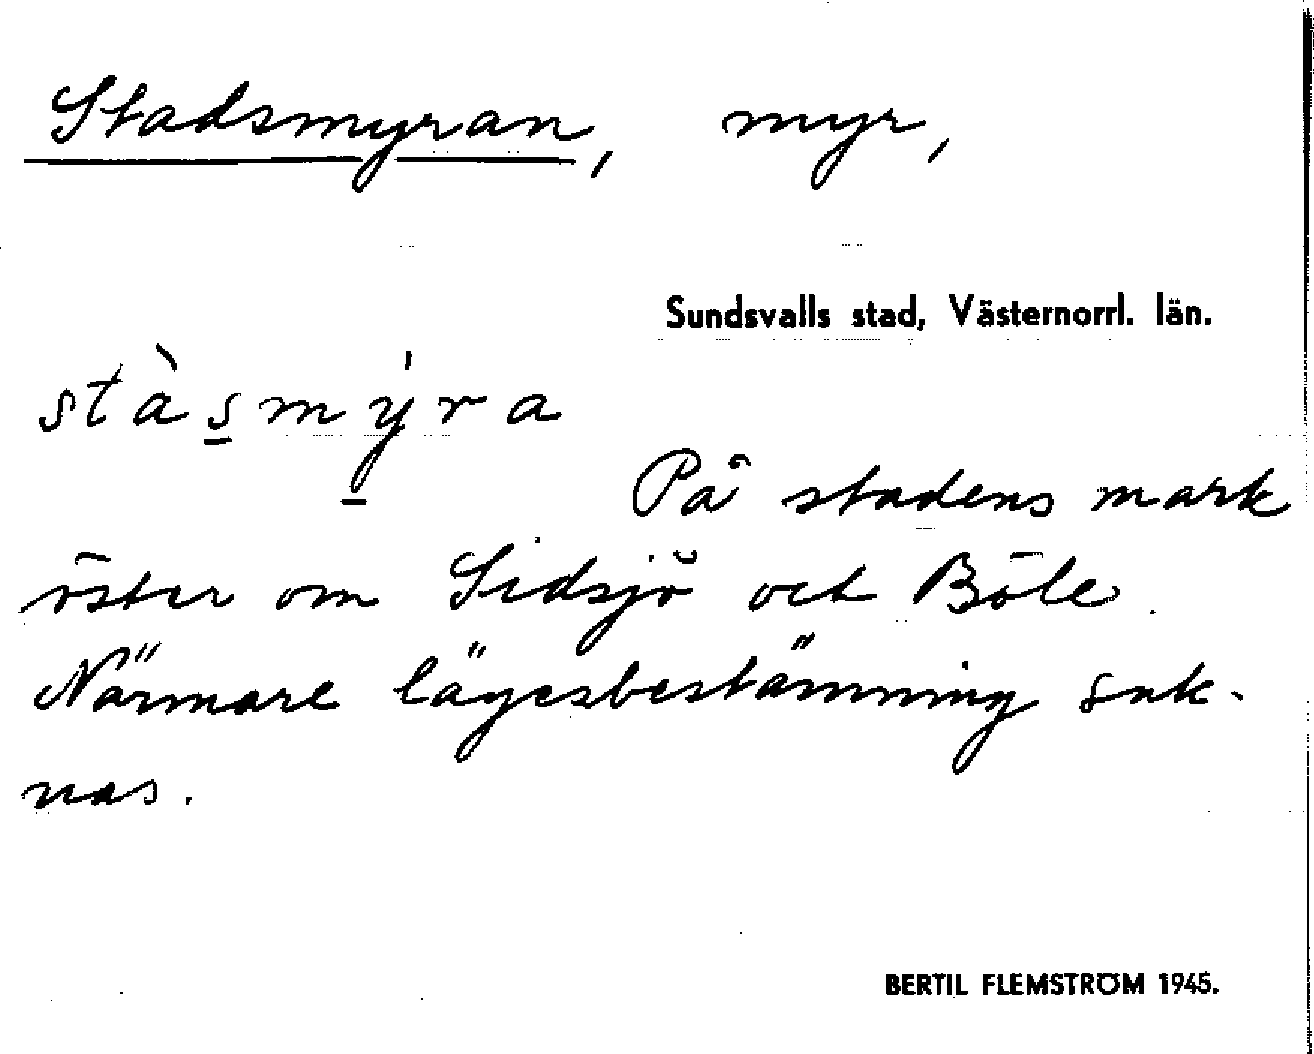 Stadsmyran, myr,
Sundsvalls stad, Västernorrl. län.
stàs̲mý̲ra
På stadens mark
öster om Sidsjö och Böle.
Närmare lägesbestämning sak-
nas.
BERTIL FLEMSTRÖM 1945.